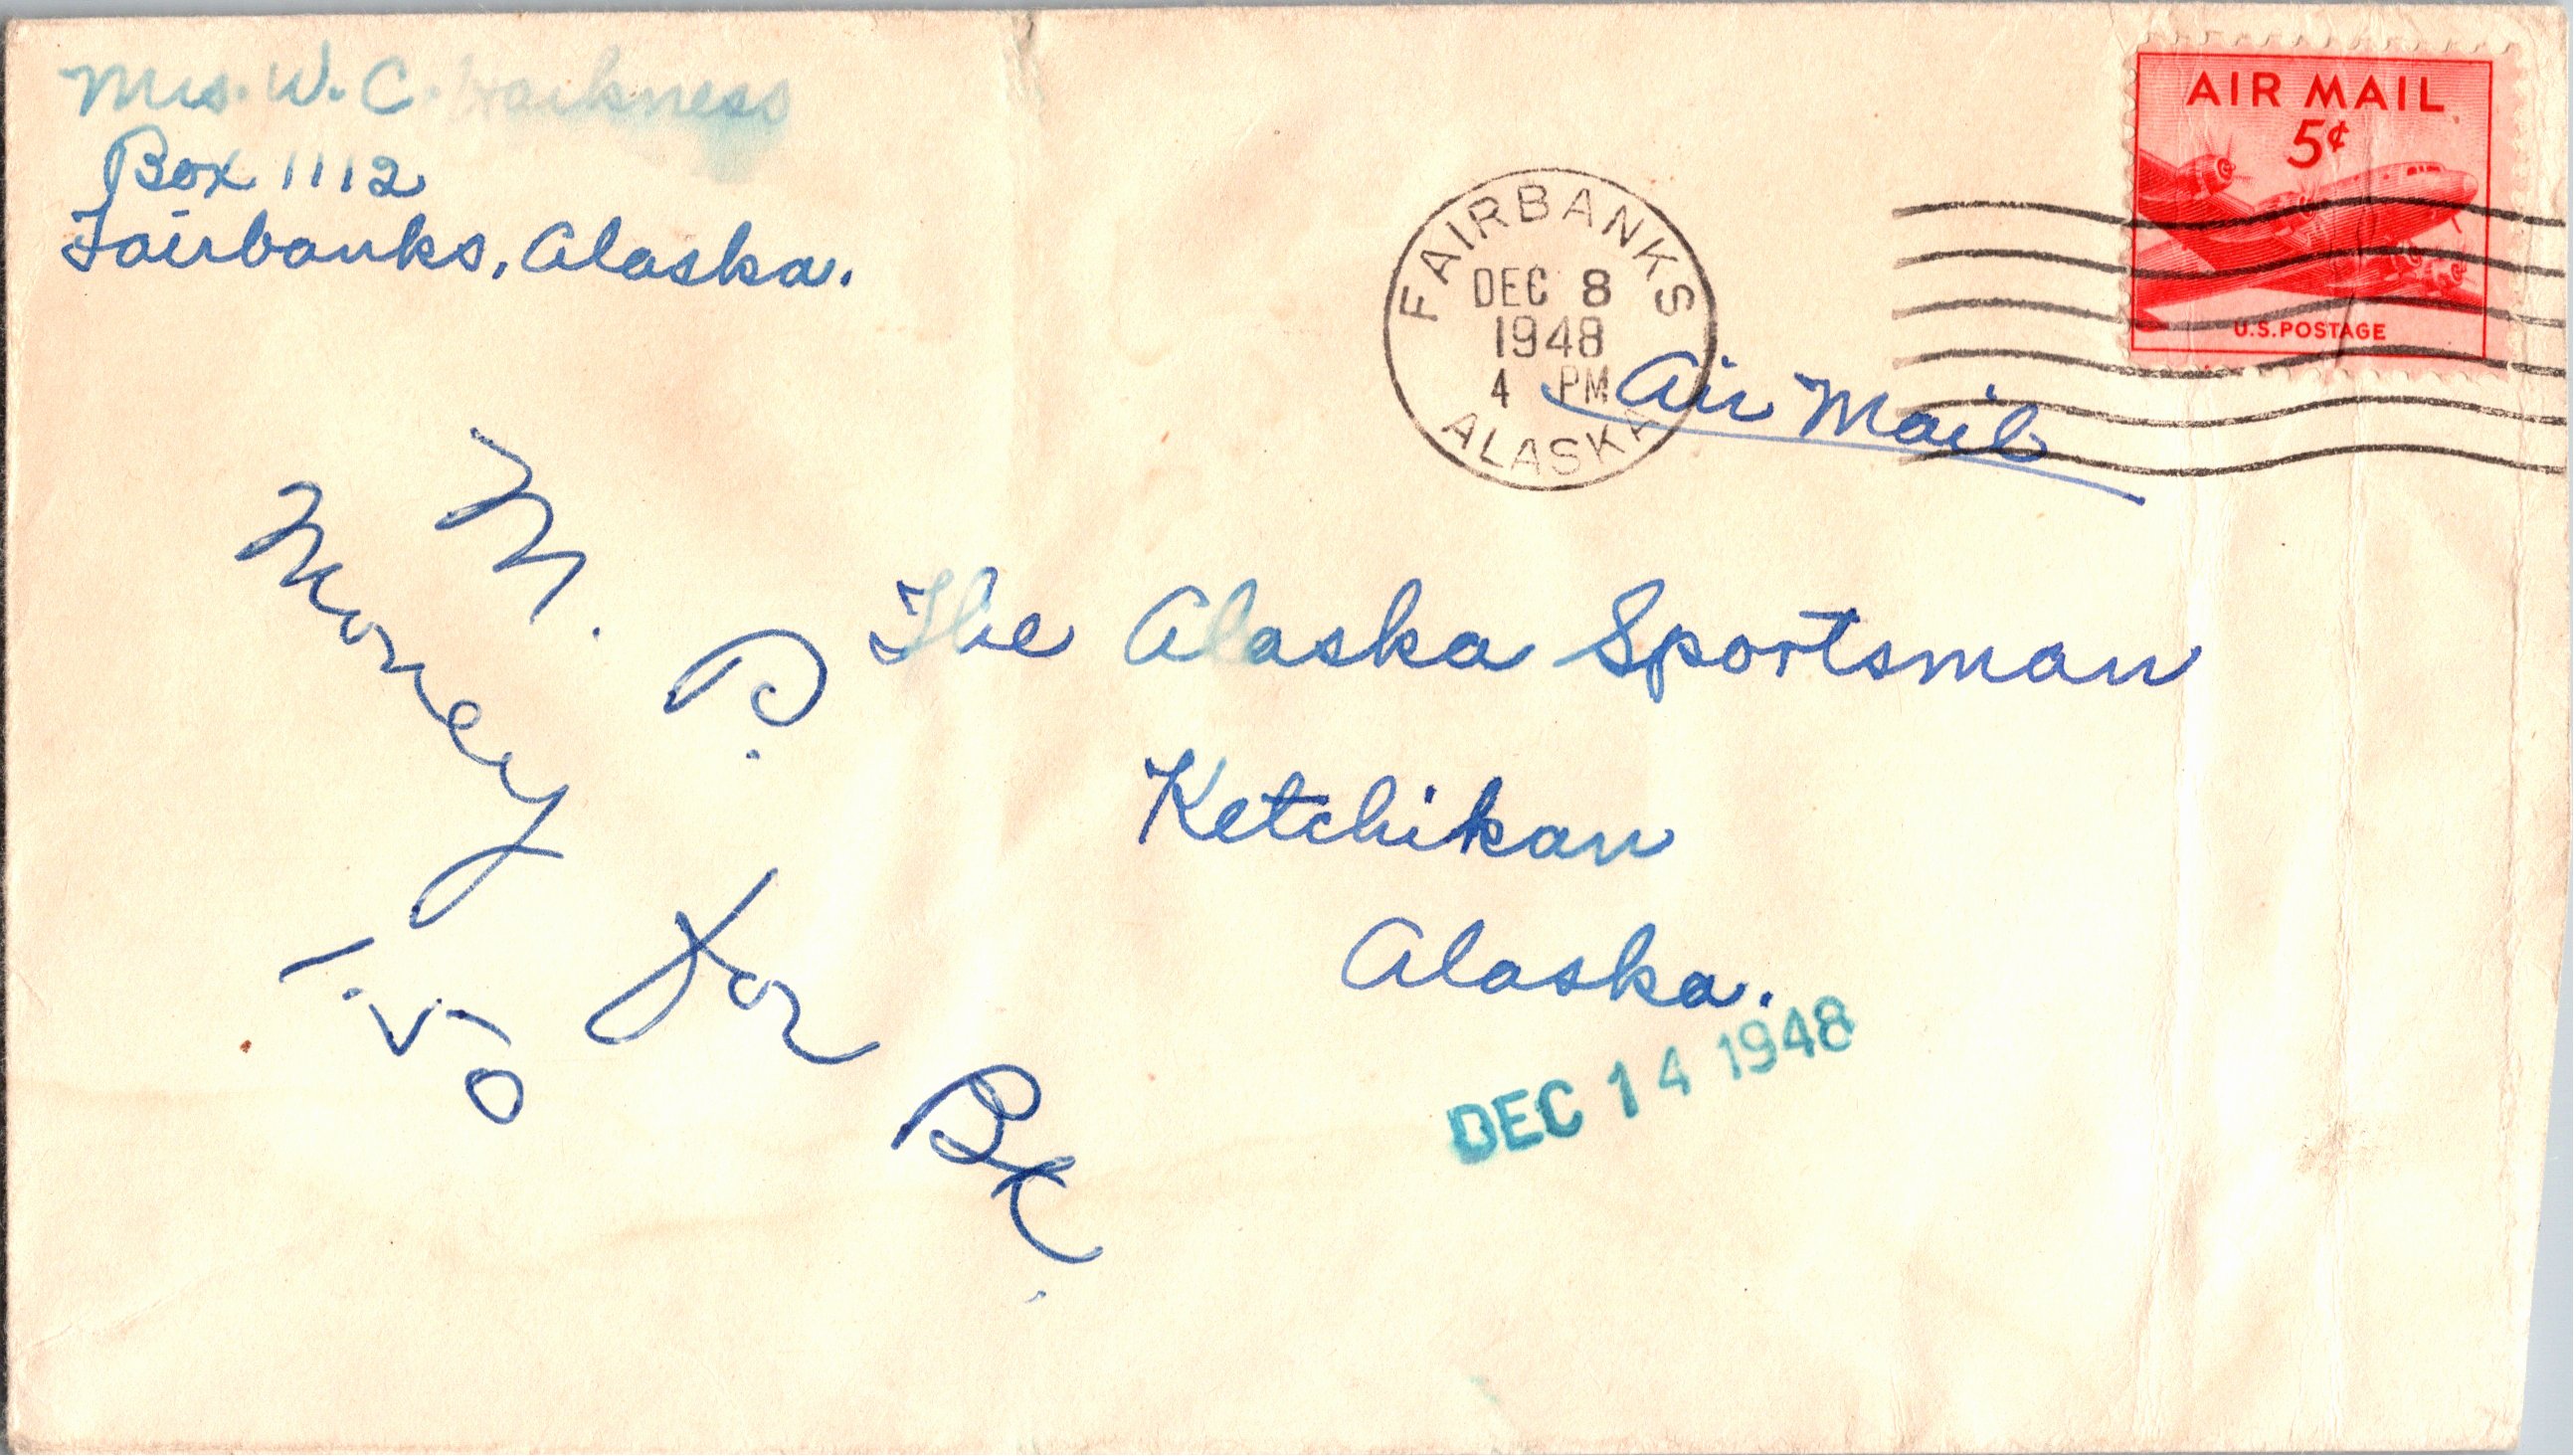 Mrs. W. C. Harkness
Box 1112
Fairbanks, Alaska.
AIR MAIL
5¢
U.S. POSTAGE
FAIRBANKS
DEC 8
1948
4 PM
ALASKA
Air Mail
The Alaska Sportsman
Ketchikan
Alaska.
DEC 14 1948
Money for Bk.